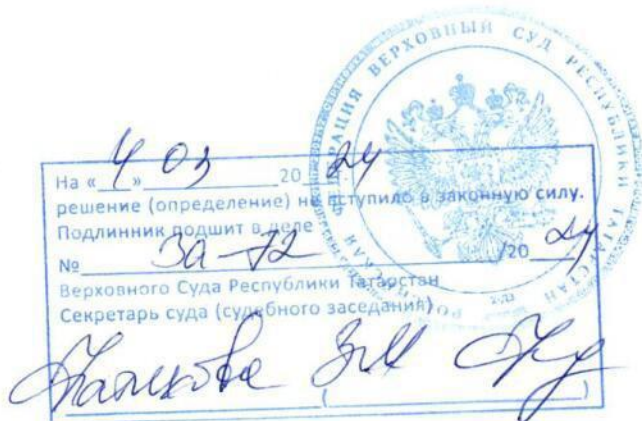 РОССИЙСКАЯ ФЕДЕРАЦИЯ ВЕРХОВНЫЙ СУД РЕСПУБЛИКИ ТАТАРСТАН
На «4» 03 2024 г.
решение (определение) не вступило в законную силу.
Подлинник подшит в деле
№ 3а-72 /2024
Верховного Суда Республики Татарстан
Секретарь суда (судебного заседания)
( )